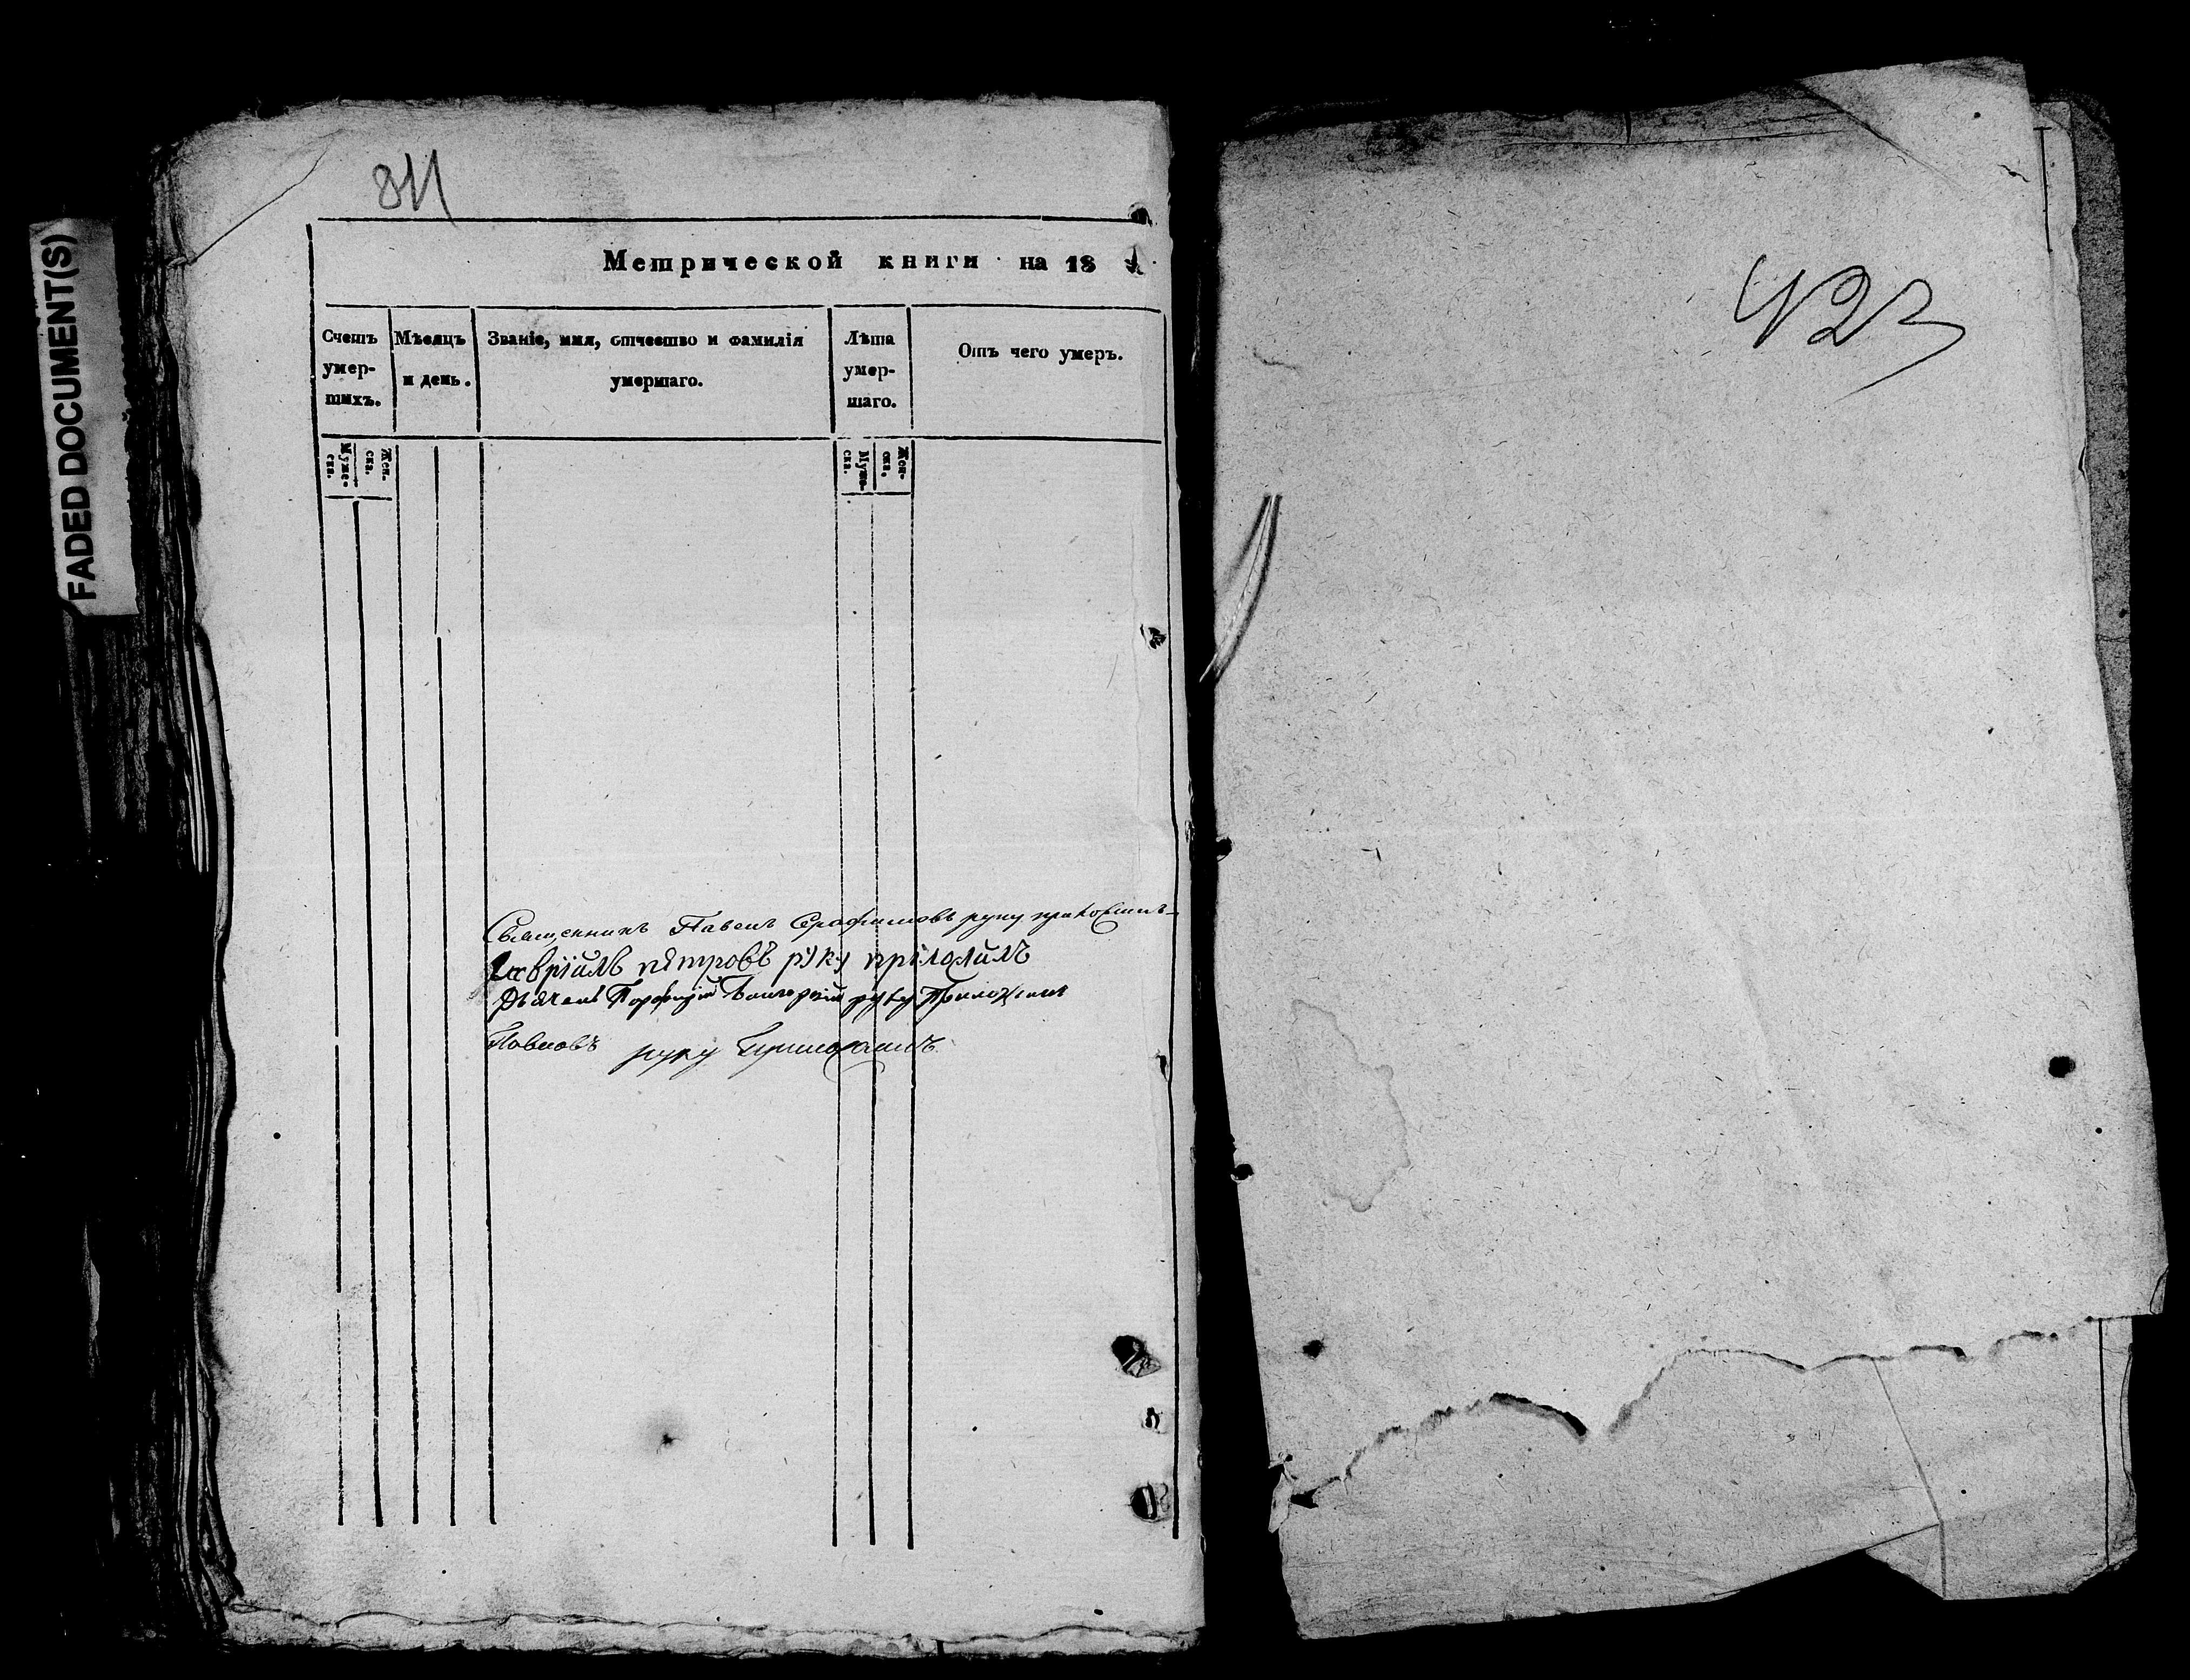 FADED DOCUMENT(S)
811
Метрической книги на 18
Счетъ умер- шихъ.
Мѣсяцъ и день.
Званіе, имя, отчество и фамилія умершаго.
Лѣта умер- шаго.
Отъ чего умеръ.
Муже- ска.
Жен- ска.
Муже- ска.
Жен- ска.
Священникъ Павелъ Серафимовъ руку приложилъ
Гавріилъ пѣтровъ руку пріложилъ
Дьячекъ Порфирій руку Приложилъ
Павловъ руку приложилъ
423